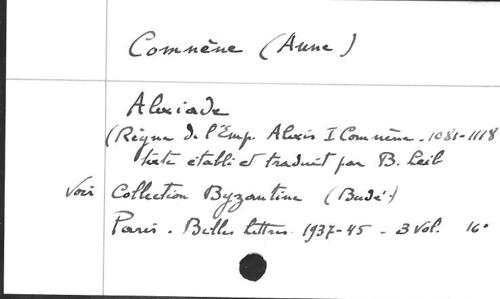 Comnène (Anne)
Alexiade
(Règne de l'Emp. Alexis I Comnène. 1081-1118
texte établi et traduit par B. Leib
Voir Collection Byzantine (Budé)
Paris. Belles lettres. 1937-45 - 3 Vol. 16°